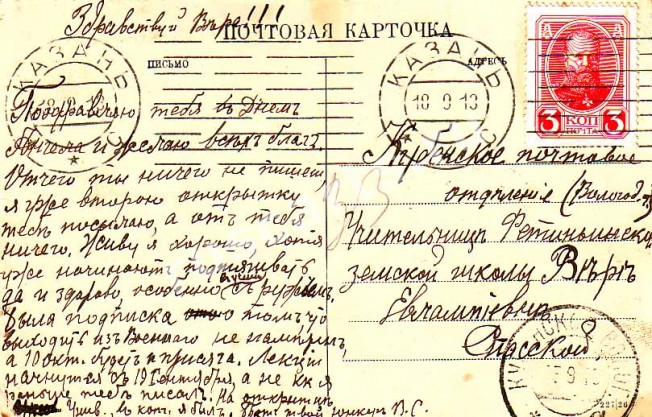 Здравствуй Вѣра!!!
ПОЧТОВАЯ КАРТОЧКА
ПИСЬМО
АДРЕСЪ
КАЗАНЬ
КАЗАНЬ
18 9 13
3 КОП 3
ПОЧТА
Поздравляю тебя съ Днемъ
Ангела и желаю всѣхъ благъ.
Отчего ты ничего не пишешь
я уже вторую открытку
тебѣ посылаю, а отъ тебя
ничего. Живу я хорошо, хотя
уже начинаютъ подтягивать
да и здорово, особенно съ ружьемъ,
была подписка о томъ, что
выходить изъ Военнаго не намѣренъ,
а 10 окт. будетъ присяга. Лекціи
начнутся съ 19 Сентября, а не какъ я
раньше тебѣ писалъ. На открыткѣ
я былъ, братъ твой юнкеръ В.С.
Кубенское почтовое
отдѣленіе (Вологод.
Учительницѣ Фетиньинской
земской школы Вѣрѣ
Евлампіевнѣ
Спасской